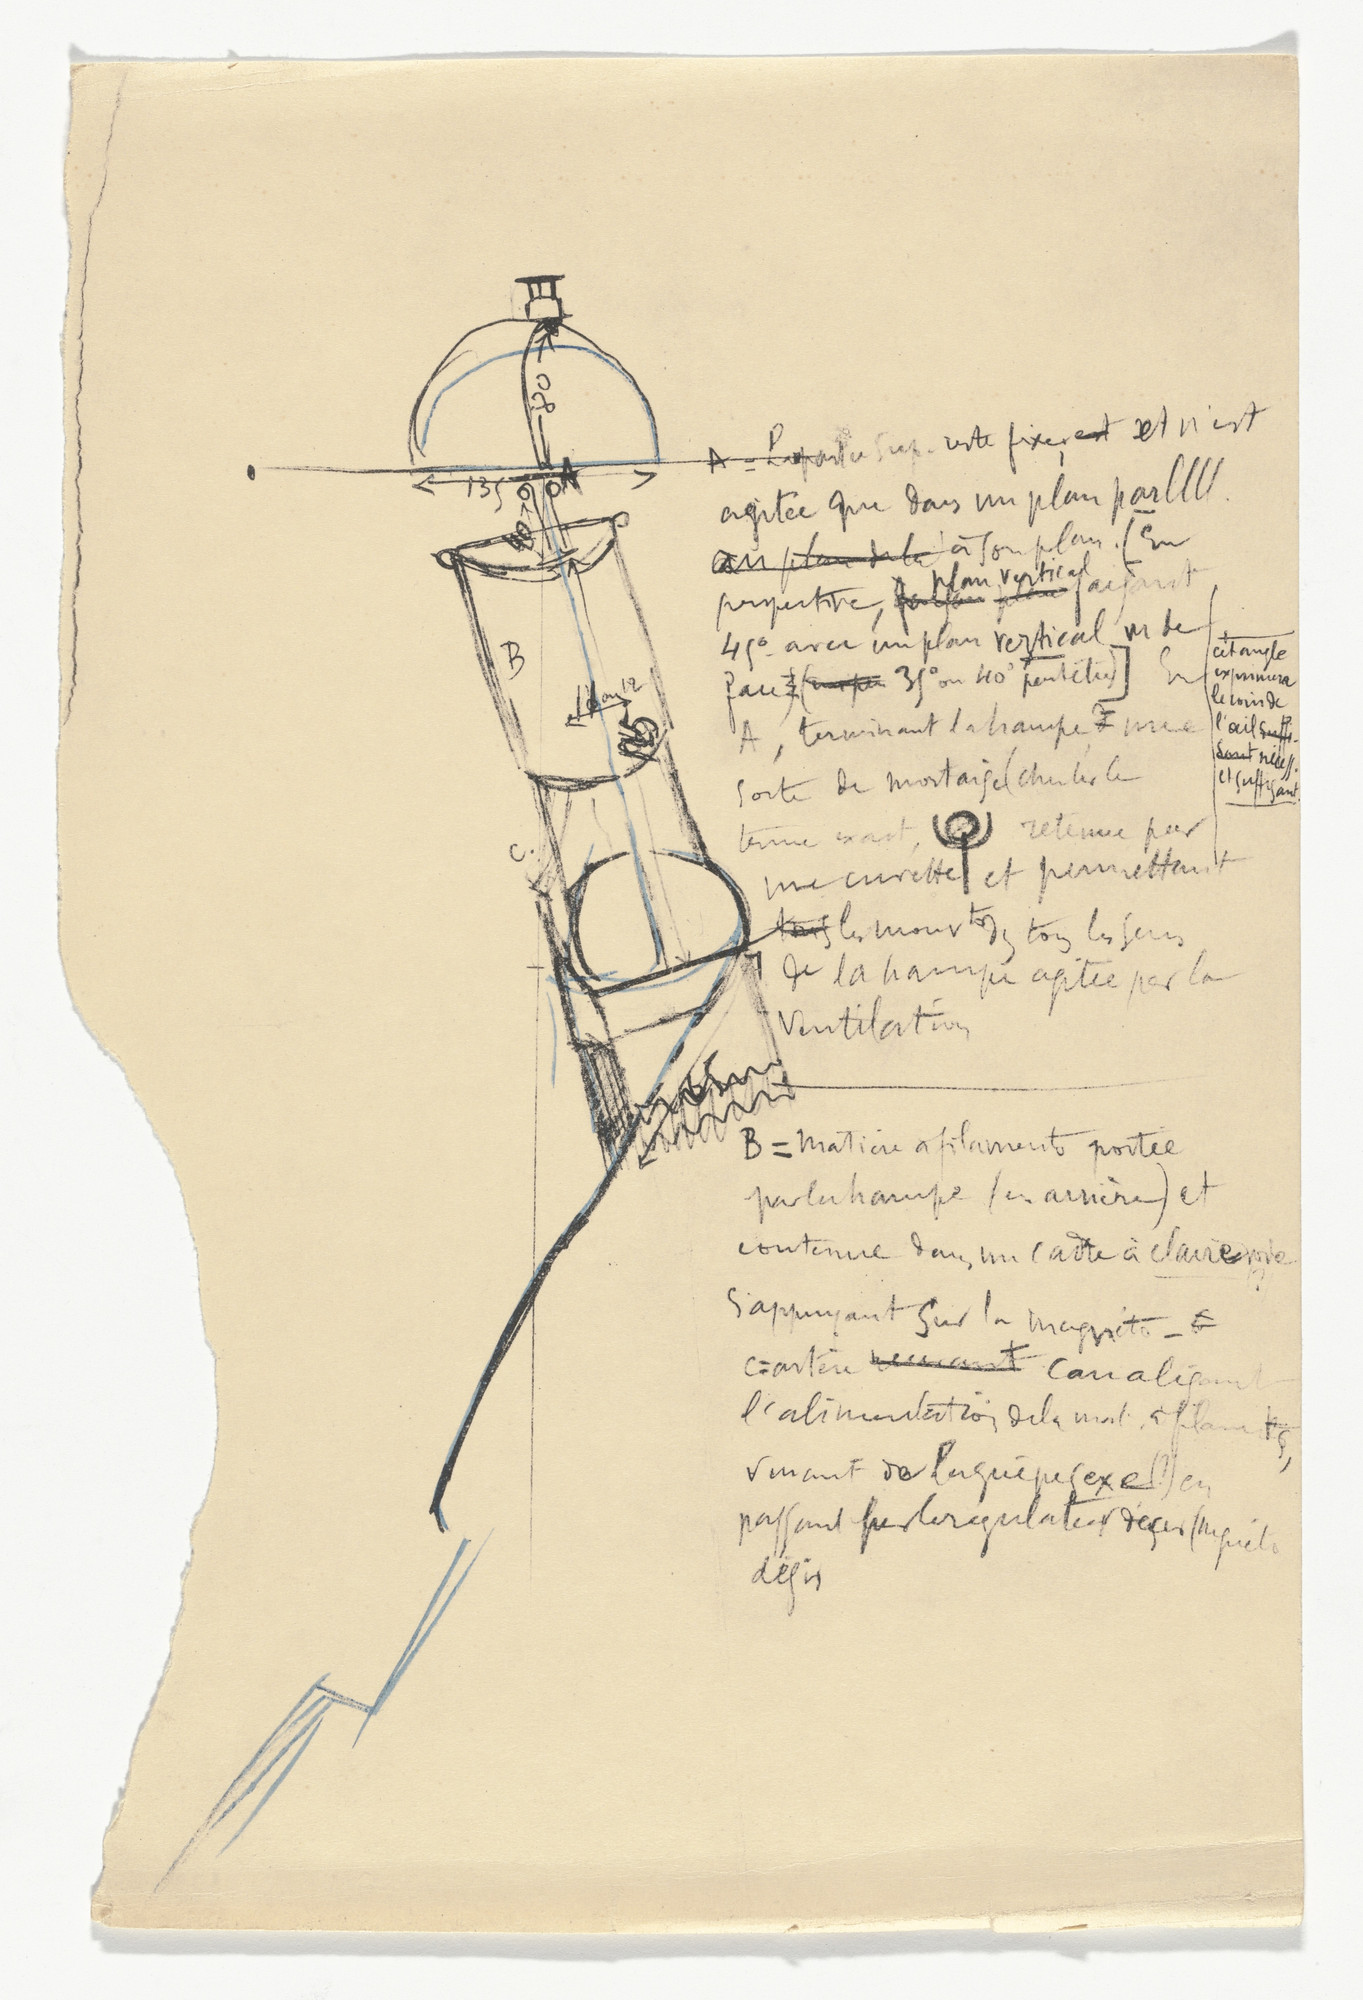 170
135
A
40
B
10 ou 12
C.
A = La partie sup. reste fixe, est et n'est
agitée que dans un plan parllll.
au plan de la à son plan. (En
perspective, plan vertical faisant
45° avec un plan vertical vu de
face) 35° ou 40° peut être] En
A, terminant la hampe, une
sorte de mortaise (chercher le
terme exact, retenue par
une cuvette et permettant
tous les mouvts ds tous les sens
de la hampe agitée par la
ventilation
cet angle
exprimera
le coin de
l'œil suffi-
sant nécess.
et suffisant.
B = matière à filaments portée
par la hampe (en arrière) et
contenue dans un cadre à claire voie
s'appuyant sur la magnéto -
C = artère venant canalisant
l'alimentation de la mat. à filamts,
venant de la guêpe (sexe ?) en
passant par le régulateur désir (magnéto
désir